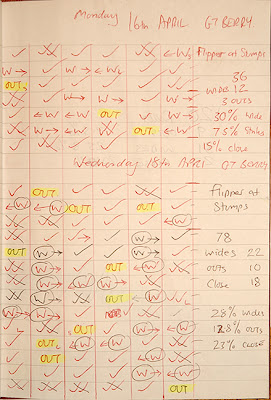 Monday 16th APRIL GT BERRY
Flipper at Stumps
W W W
OUT 36
WIDES 12
W W W W
3 OUTS
W W OUT W 30% wide
W W OUT W 75% Strikes
15% close
Wednesday 18th APRIL GT BERRY
OUT flipper at
W W OUT OUT Stumps
W
W 78
OUT W W wides 22
W W OUTS 10
W W W W Close 18
OUT W
W W W 28% wides
OUT W W 12.8% OUTS
OUT W 23% close
OUT W
OUT